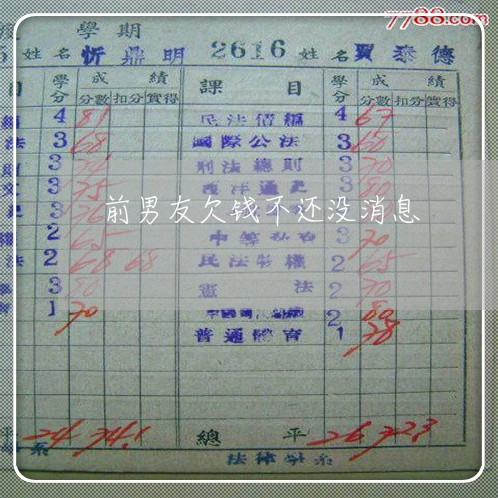 7788.com
學期
姓名 忻鼎明 2616 姓名 賈泰德
目 學分 成績 課目 學分 成績
分數 扣分 實得 分數 扣分 實得
4 81 民法債編 4 67
法 3 68 國際公法 3 60
3 刑法總則 3 70
3 75 西洋通史 3 80
前男友欠钱不还没消息
2 65 3 70
法 2 68 68 民法物權 2 65
3 80 憲法 2 70
1 70 2 80
普通體育 1 78
平 24 74.1 總平 26 72.3
系 法律學系